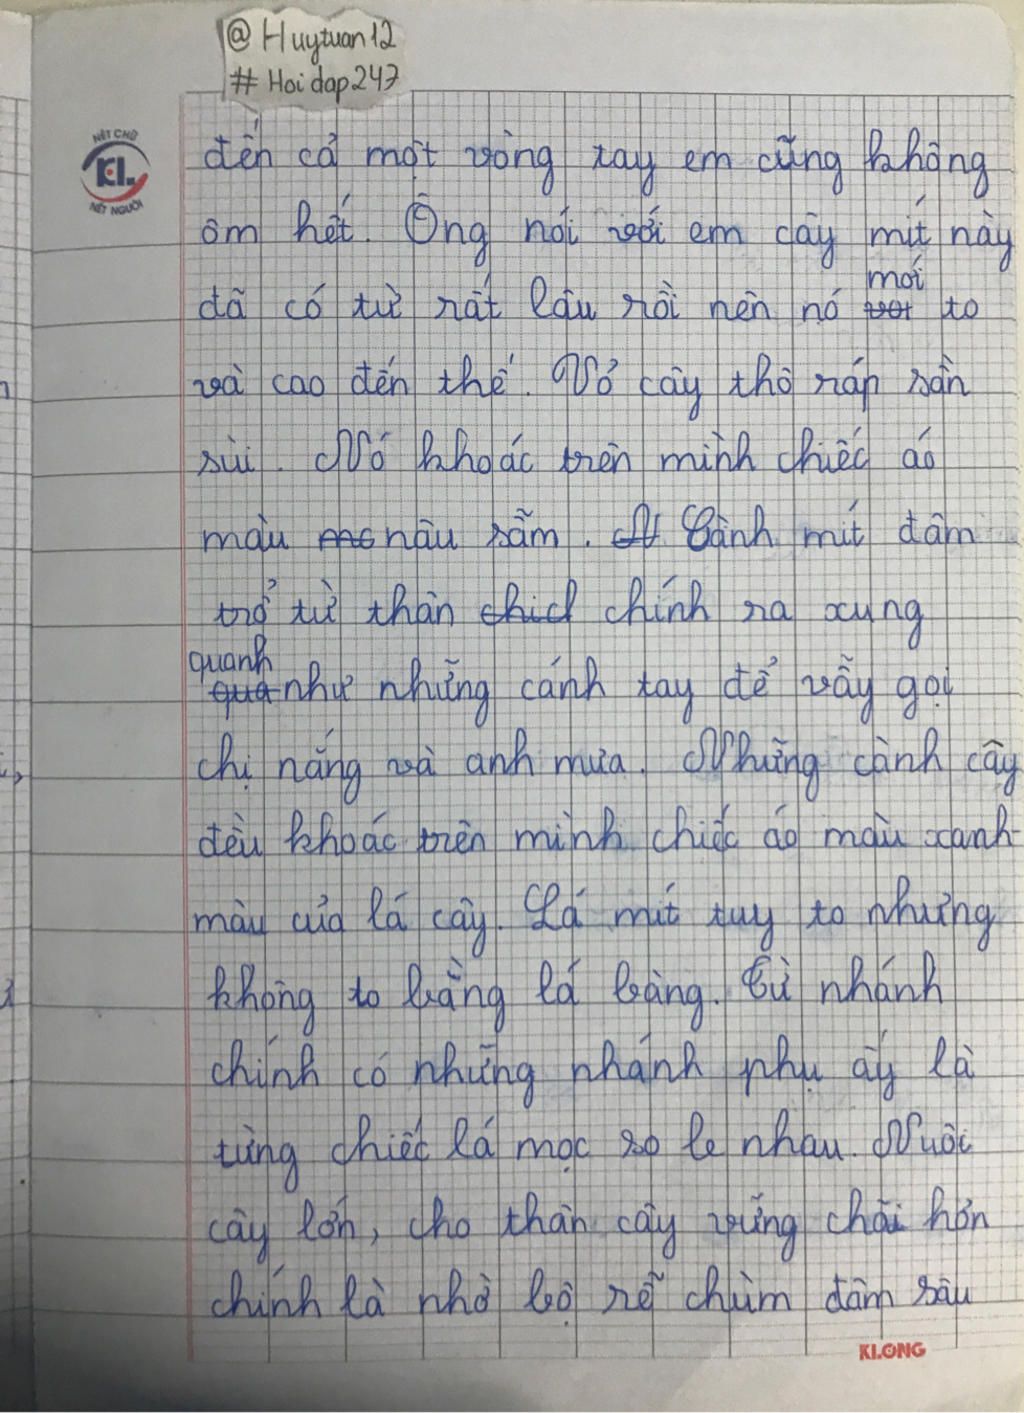 @ Huytuan12
# Hoidap247
NÉT CHỮ
KL.
NẾT NGƯỜI
đến cả một vòng tay em cũng không
ôm hết. Ông nói với em cây mít này
mới
đã có từ rất lâu rồi nên nó to
và cao đến thế. Vỏ cây thô ráp sần
sùi. Nó khoác trên mình chiếc áo
màu nâu sẫm. Cành mít đâm
trổ từ thân chính ra xung
quanh
như những cánh tay để vẫy gọi
chị nắng và anh mưa. Những cành cây
đều khoác trên mình chiếc áo màu xanh
màu của lá cây. Lá mít tuy to nhưng
không to bằng lá bàng. Từ nhánh
chính có những nhánh phụ ấy là
từng chiếc lá mọc so le nhau. Nuôi
cây lớn, cho thân cây vững chãi hơn
chính là nhờ bộ rễ chùm đâm sâu
KLONG